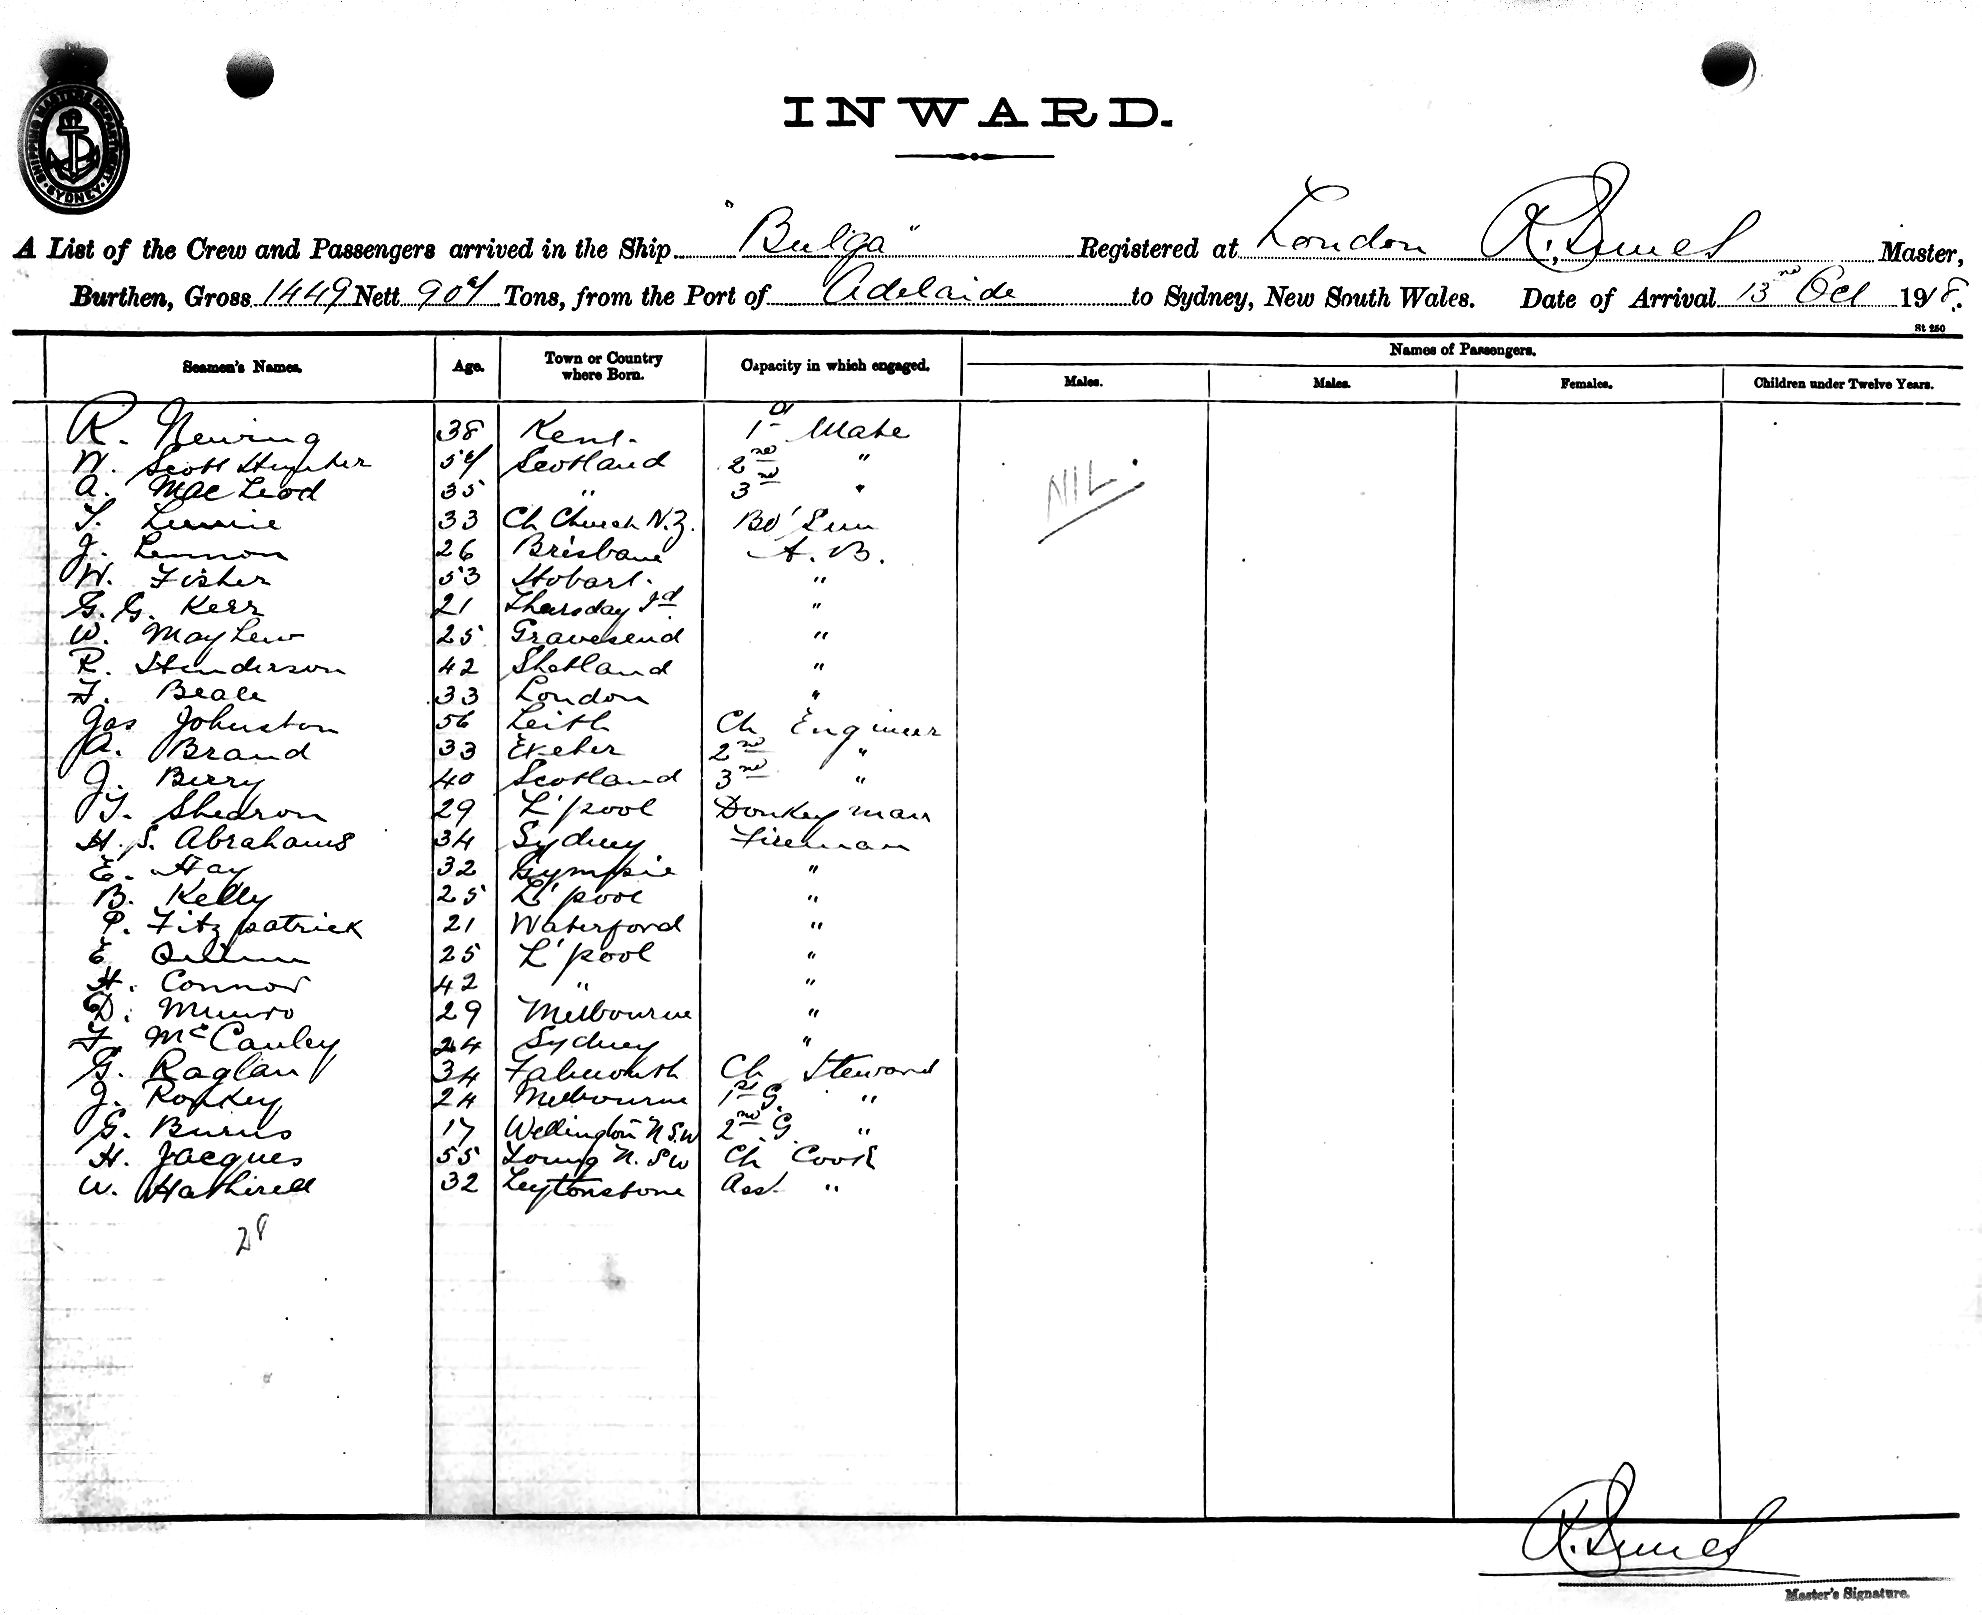 SHIPPING MASTERS DEPARTMENT SYDNEY
INWARD.
A List of the Crew and Passengers arrived in the Ship "Bulga" Registered at London R. Master,
Burthen, Gross 1449 Nett 904 Tons, from the Port of Adelaide to Sydney, New South Wales. Date of Arrival 13 Oct 1918.
St 250
Seamen's Names. Age. Town or Country where Born. Capacity in which engaged. Names of Passengers.
Males. Males. Females. Children under Twelve Years.
R. 38 Kent. 1st Mate
W. Scott 54 Scotland 2nd "
A. MacLeod 35 " 3rd "
33 Ch Church N.Z. Bo'Sun
J. Lennon 26 Brisbane A.B.
W. Fisher 53 Hobart. "
G. G. Kerr 21 Thursday Id "
W. Mayhew 25 Gravesend "
R. Henderson 42 Shetland "
F. Beale 33 London "
Jas Johnston 56 Leith Ch Engineer
A. Brand 33 Exeter 2nd "
J. Berry 40 Scotland 3rd "
T. Shedron 29 L'pool Donkeyman
H. S. Abrahams 34 Sydney Fireman
E. Hay 32 Gympie "
B. Kelly 25 L'pool "
P. Fitzpatrick 21 Waterford "
E 25 L'pool "
H. Connor 42 " "
D. Munro 29 Melbourne "
F. McCauley 24 Sydney "
G. Raglan 34 Falmouth Ch Steward
J. 24 Melbourne 1st G. "
G. Burns 17 Wellington N.S.W 2nd G. "
H. Jacques 55 Young N.S.W Ch Cook
W. 32 Leytonstone Asst. "
NIL.
28
R.
Master's Signature.